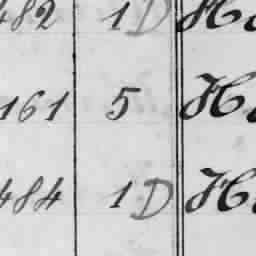 482 1 D
161 5
484 1 D